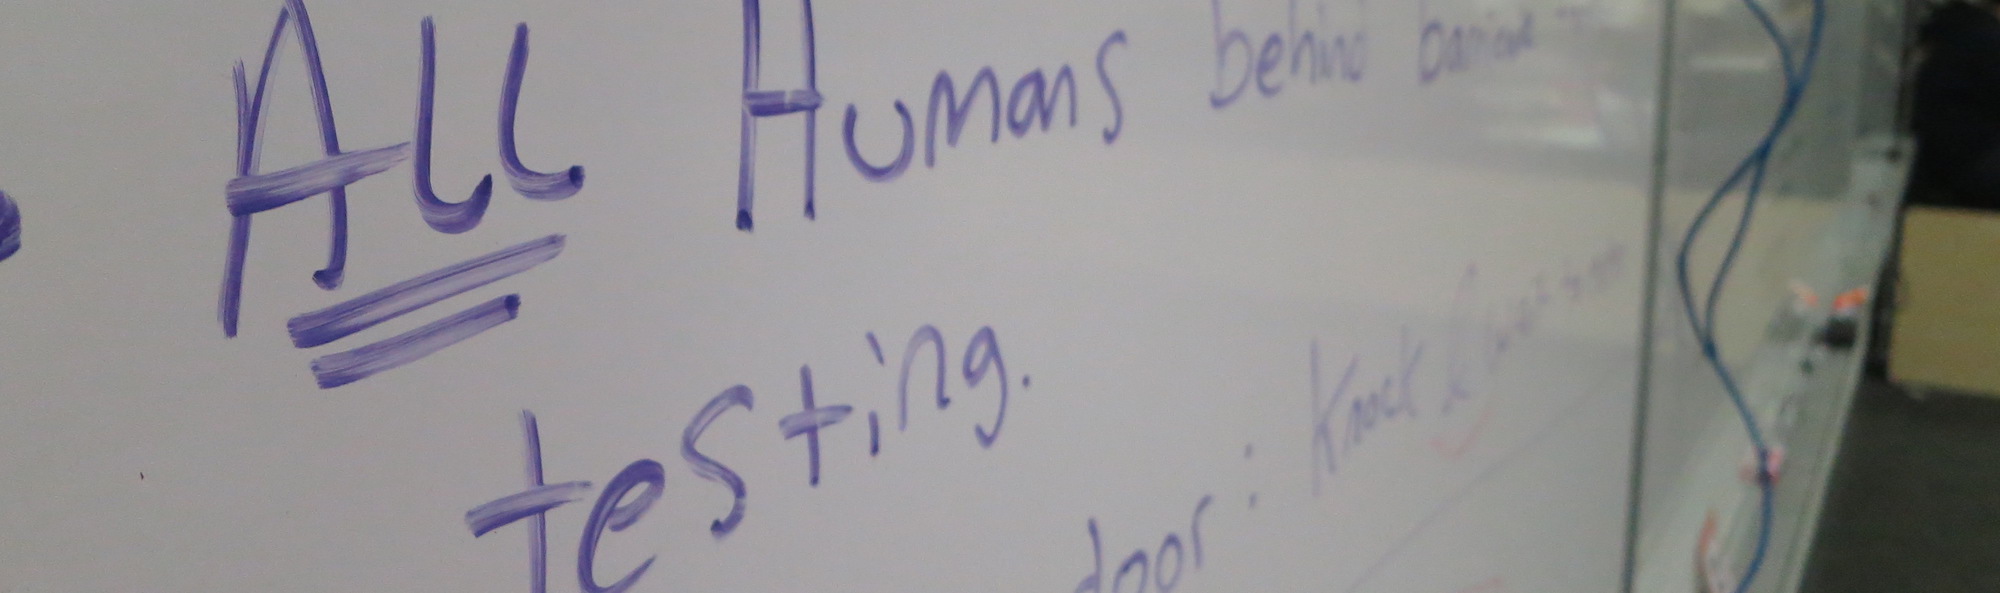 All Humans behind barrier
testing.
door: Knock &